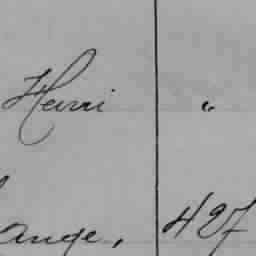 Henri "
ange, 427